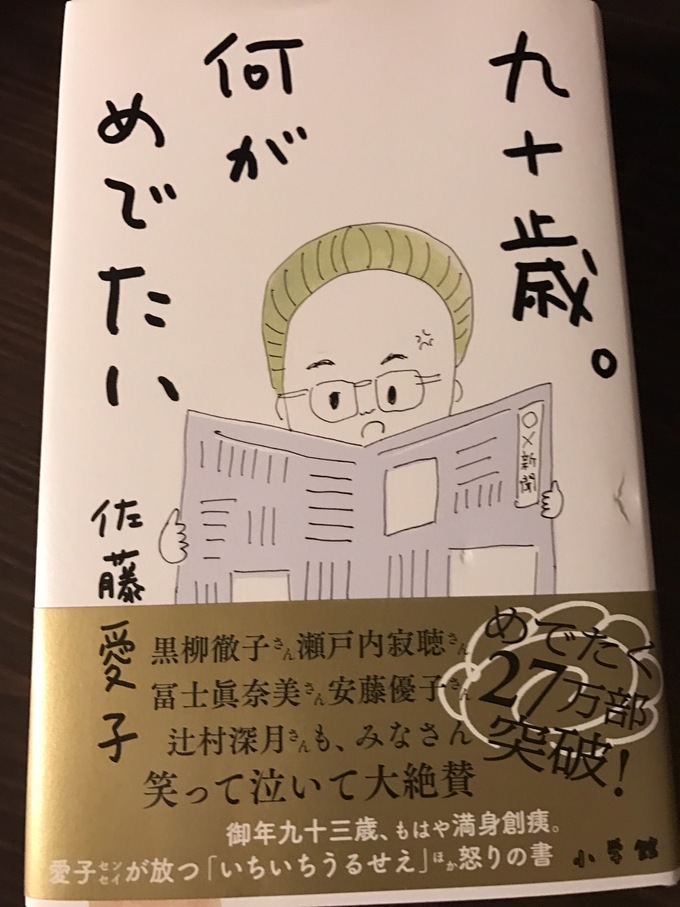 九十歳。
何が
めでたい
佐藤愛子
○×新聞
黒柳徹子さん瀬戸内寂聴さん
冨士眞奈美さん安藤優子さん
辻村深月さんも、みなさん
笑って泣いて大絶賛
めでたく
27万部
突破!
御年九十三歳、もはや満身創痍。
愛子センセイが放つ「いちいちうるせえ」ほか怒りの書
小学館